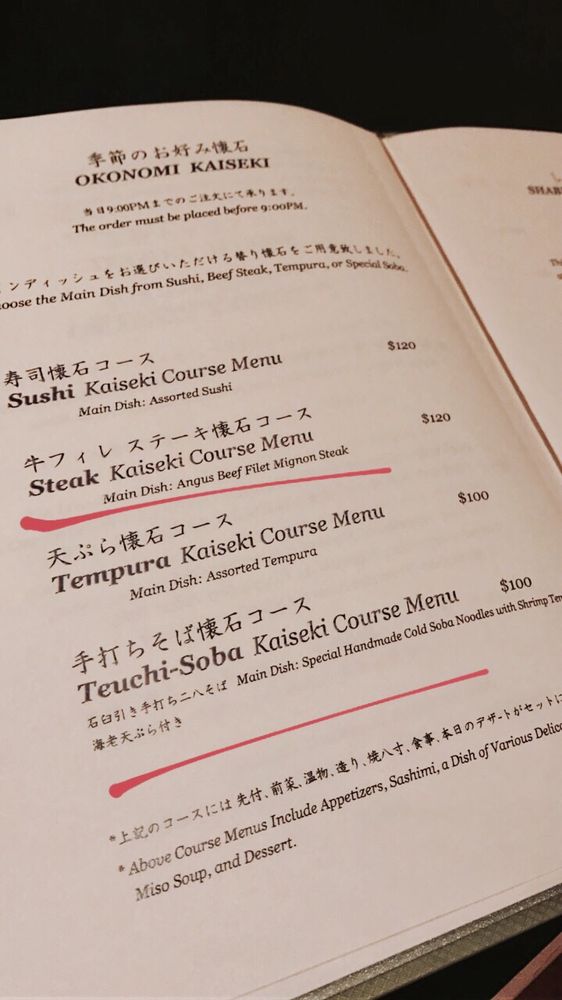 季節のお好み懐石
OKONOMI KAISEKI
当日9:00PMまでのご注文にて承ります。
The order must be placed before 9:00PM.
ンディッシュをお選びいただける替り懐石をご用意致しました。
oose the Main Dish from Sushi, Beef Steak, Tempura, or Special Soba.
寿司懐石コース
Sushi Kaiseki Course Menu $120
Main Dish: Assorted Sushi
牛フィレ ステーキ懐石コース
Steak Kaiseki Course Menu $120
Main Dish: Angus Beef Filet Mignon Steak
天ぷら懐石コース
Tempura Kaiseki Course Menu $100
Main Dish: Assorted Tempura
手打ちそば懐石コース
Teuchi-Soba Kaiseki Course Menu $100
石臼引き手打ち二八そば Main Dish: Special Handmade Cold Soba Noodles with Shrimp Tem
海老天ぷら付き
*上記のコースには先付、前菜、温物、造り、焼八寸、食事、本日のデザートがセットに
* Above Course Menus Include Appetizers, Sashimi, a Dish of Various Delica
Miso Soup, and Dessert.
SHAB